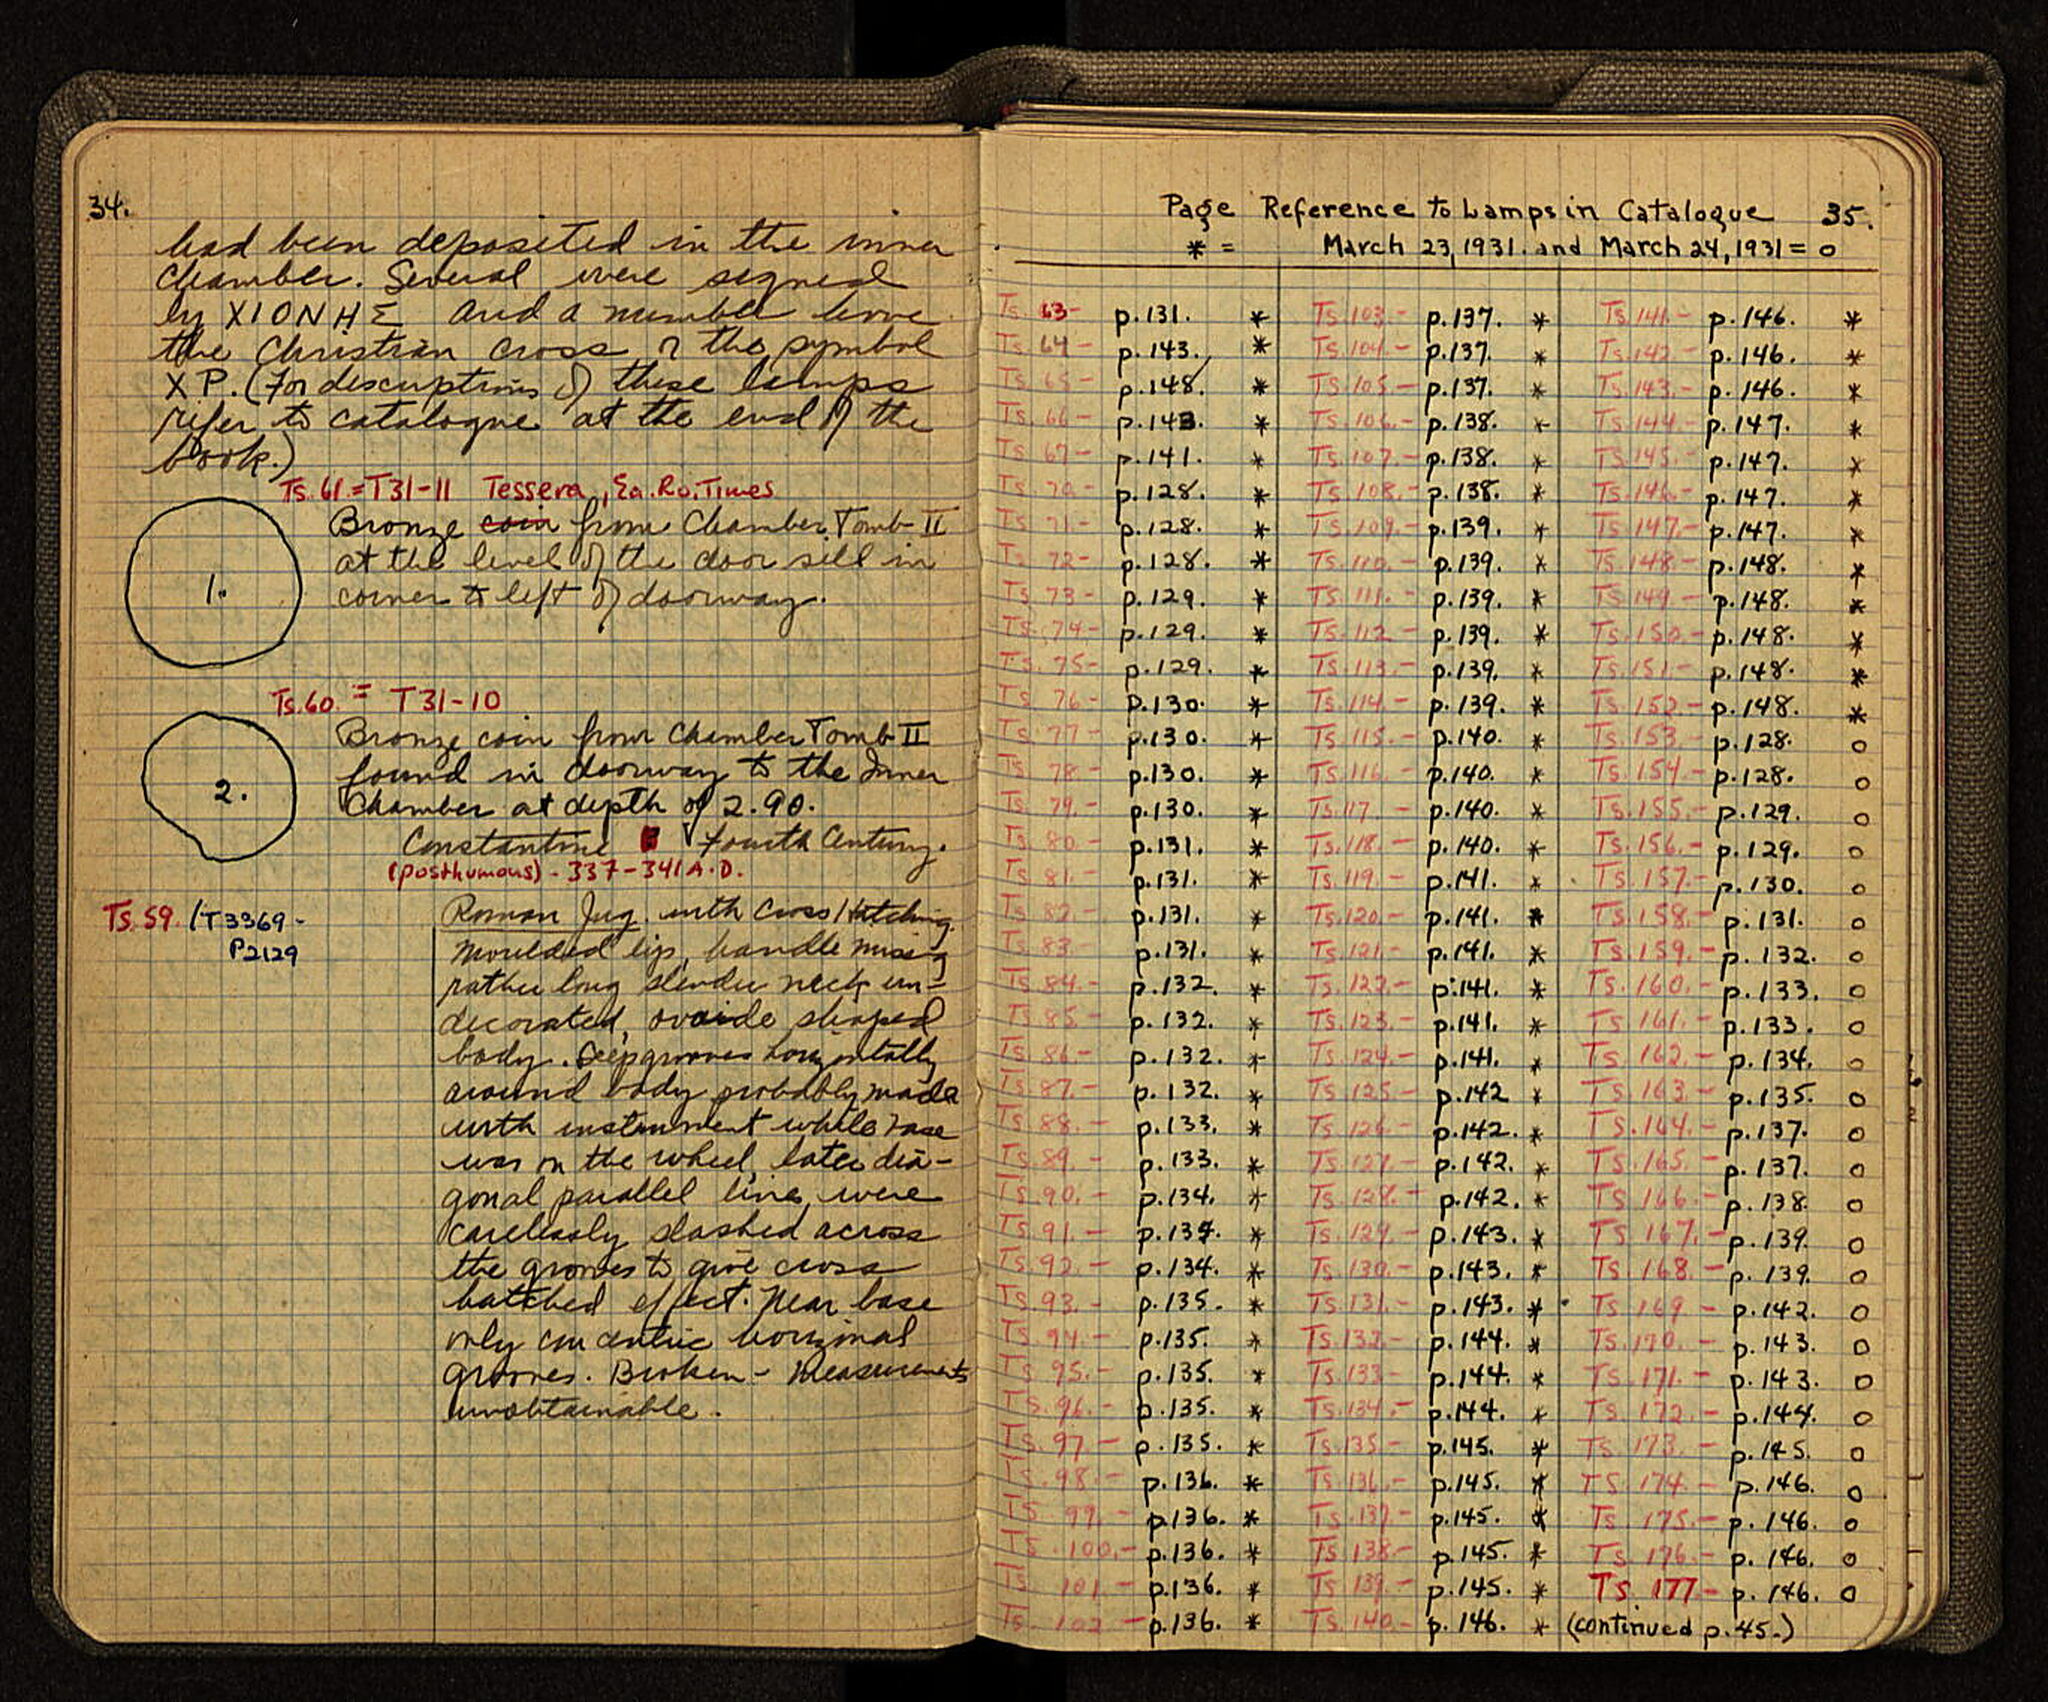 34.
had been deposited in the inner
chamber. Several were signed
by XIONHΣ and a number bore
the Christian cross or the symbol
XP. (For descriptions of these lamps
refer to catalogue at the end of the
book.)
Ts. 61. = T31-11 Tessera, Ea. Ro. Times
Bronze coin from Chamber Tomb II
at the level of the door sill in
corner to left of doorway.
1.
Ts. 60. = T31-10
Bronze coin from Chamber Tomb II
found in doorway to the Inner
Chamber at depth of 2.90.
2.
Constantine Fourth Century.
(posthumous) - 337-341 A.D.
Ts. 59. / T3369-
P2129
Roman Jug. with Cross Hatching.
Moulded lip, handle missing
rather long slender neck un-
decorated, ovoide shaped
body. Deep grooves horizontally
around body probably made
with instrument while vase
was on the wheel, later dia-
gonal parallel lines were
carelessly slashed across
the grooves to give cross
hatched effect. Near base
only concentric
grooves. Broken - Measurements
unobtainable.
Page Reference to Lamps in Catalogue 35.
* = March 23, 1931. and March 24, 1931 = o
Ts. 63- p.131. * Ts.103.- p.137. * Ts.141.- p.146. *
Ts. 64- p.143. * Ts.104.- p.137. * Ts.142- p.146. *
Ts. 65- p.148. * Ts.105.- p.137. * Ts.143.- p.146. *
Ts. 66- p.143. * Ts.106.- p.138. * Ts.144.- p.147. *
Ts. 67- p.141. * Ts.107.- p.138. * Ts.145.- p.147. *
Ts. 70- p.128. * Ts.108.- p.138. * Ts.146.- p.147. *
Ts. 71- p.128. * Ts.109.- p.139. * Ts.147.- p.147. *
Ts. 72- p.128. * Ts.110.- p.139. * Ts.148.- p.148. *
Ts. 73- p.129. * Ts.111.- p.139. * Ts.149.- p.148. *
Ts. 74- p.129. * Ts.112- p.139. * Ts.150.- p.148. *
Ts. 75- p.129. * Ts.113.- p.139. * Ts.151.- p.148. *
Ts. 76- p.130. * Ts.114.- p.139. * Ts.152.- p.148. *
Ts. 77- p.130. * Ts.115.- p.140. * Ts.153.- p.128. o
Ts. 78.- p.130. * Ts.116.- p.140. * Ts.154.- p.128. o
Ts. 79.- p.130. * Ts.117- p.140. * Ts.155.- p.129. o
Ts. 80.- p.131. * Ts.118.- p.140. * Ts.156.- p.129. o
Ts. 81.- p.131. * Ts.119.- p.141. * Ts.157.- p.130. o
Ts. 82.- p.131. * Ts.120.- p.141. * Ts.158.- p.131. o
Ts. 83. p.131. * Ts.121.- p.141. * Ts.159.- p.132. o
Ts. 84.- p.132. * Ts.122.- p.141. * Ts.160.- p.133. o
Ts. 85.- p.132. * Ts.123.- p.141. * Ts.161.- p.133. o
Ts. 86.- p.132. * Ts.124.- p.141. * Ts.162.- p.134. o
Ts. 87.- p.132. * Ts.125.- p.142 * Ts.163.- p.135. o
Ts. 88.- p.133. * Ts.126.- p.142. * Ts.164.- p.137. o
Ts. 89.- p.133. * Ts.127.- p.142. * Ts.165.- p.137. o
Ts. 90.- p.134. * Ts.128.- p.142. * Ts.166.- p.138. o
Ts. 91.- p.134. * Ts.129.- p.143. * Ts.167.- p.139. o
Ts. 92.- p.134. * Ts.130.- p.143. * Ts.168.- p.139. o
Ts. 93.- p.135. * Ts.131.- p.143. * Ts.169- p.142. o
Ts. 94.- p.135. * Ts.132.- p.144. * Ts.170.- p.143. o
Ts. 95.- p.135. * Ts.133- p.144. * Ts.171.- p.143. o
Ts. 96.- p.135. * Ts.134.- p.144. * Ts.172.- p.144. o
Ts. 97- p.135. * Ts.135- p.145. * Ts.173.- p.145. o
Ts. 98.- p.136. * Ts.136.- p.145. * Ts.174.- p.146. o
Ts. 99.- p.136. * Ts.137- p.145. * Ts.175.- p.146. o
Ts. 100.- p.136. * Ts.138- p.145. * Ts.176.- p.146. o
Ts. 101.- p.136. * Ts.139.- p.145. * Ts.177- p.146. o
Ts. 102- p.136. * Ts.140.- p.146. * (continued p.45.)